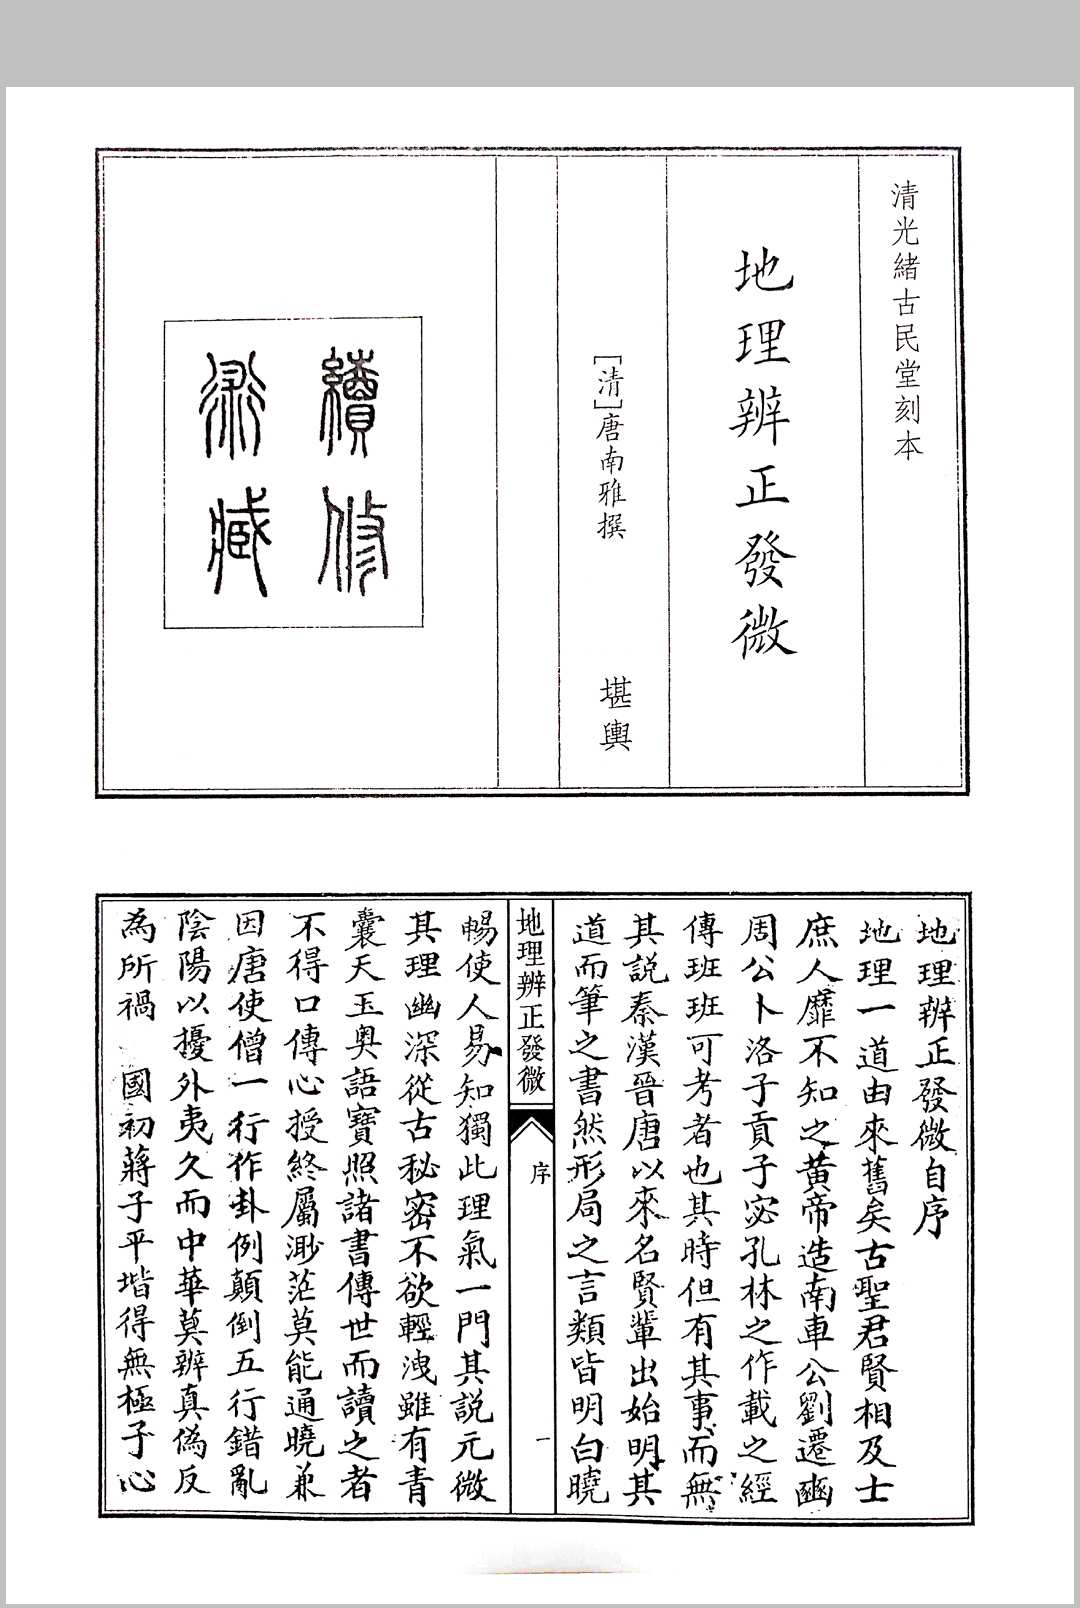 清光緒古民堂刻本
地理辨正發微
[清]唐南雅撰
堪輿
續修
術藏
地理辨正發微自序
地理一道由來舊矣古聖君賢相及士
庶人靡不知之黃帝造南車公劉遷豳
周公卜洛子貢子宓孔林之作載之經
傳班班可考者也其時但有其事而無
其說秦漢晉唐以來名賢輩出始明其
道而筆之書然形局之言類皆明白曉
地理辨正發微
序
一
暢使人易知獨此理氣一門其說元微
其理幽深從古秘密不欲輕洩雖有青
囊天玉奧語寶照諸書傳世而讀之者
不得口傳心授終屬渺茫莫能通曉兼
因唐使僧一行作卦例顛倒五行錯亂
陰陽以擾外夷久而中華莫辨真偽反
為所禍　國初蔣子平堦得無極子心